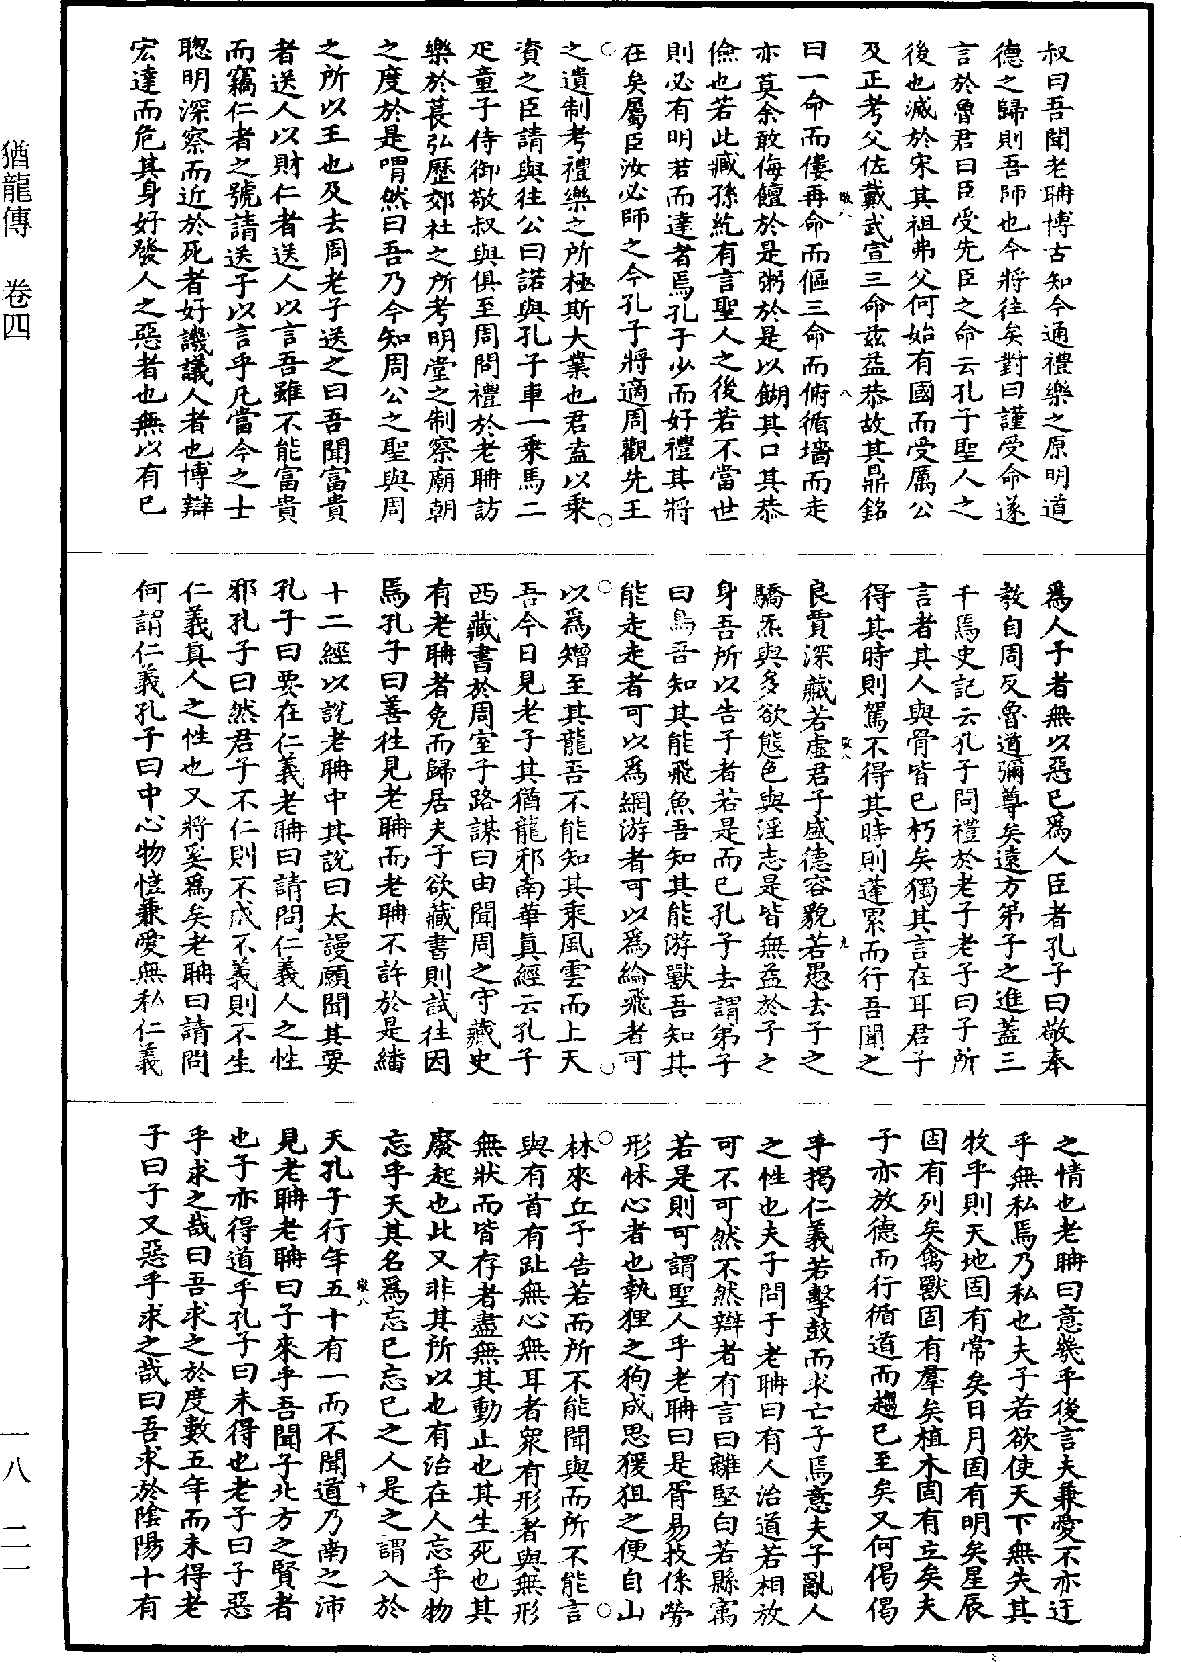 叔曰吾聞老聃博古知今通禮樂之原明道
德之歸則吾師也今將往矣對曰謹受命遂
言於魯君曰臣受先臣之命云孔子聖人之
後也滅於宋其祖弗父何始有國而受厲公
及正考父佐戴武宣三命玆益恭故其鼎銘
曰一命而僂再命而傴三命而俯循墻而走
亦莫余敢侮饘於是粥於是以餬其口其恭
儉也若此臧孫紇有言聖人之後若不當世
則必有明若而達者焉孔子少而好禮其將
在矣屬臣汝必師之今孔子將適周觀先王
之遺制考禮樂之所極斯大業也君盍以乘
資之臣請與往公曰諾與孔子車一乘馬二
疋童子侍御敬叔與俱至周問禮於老聃訪
樂於萇弘歷郊社之所考明堂之制察廟朝
之度於是喟然曰吾乃今知周公之聖與周
之所以王也及去周老子送之曰吾聞富貴
者送人以財仁者送人以言吾雖不能富貴
而竊仁者之號請送子以言乎凡當今之士
聰明深察而近於死者好譏議人者也博辯
宏達而危其身好發人之惡者也無以有已
爲人子者無以惡已爲人臣者孔子曰敬奉
教自周反魯道彌尊矣遠方弟子之進蓋三
千焉史記云孔子問禮於老子老子曰子所
言者其人與骨皆已朽矣獨其言在耳君子
得其時則駕不得其時則蓬累而行吾聞之
良賈深藏若虛君子盛德容貌若愚去子之
驕炁與多欲態色與淫志是皆無益於子之
身吾所以告子者若是而已孔子去謂弟子
曰鳥吾知其能飛魚吾知其能游獸吾知其
能走走者可以爲網游者可以爲綸飛者可
以爲矰至其龍吾不能知其乘風雲而上天
吾今日見老子其猶龍邪南華眞經云孔子
西藏書於周室子路謀曰由聞周之守藏史
有老聃者免而歸居夫子欲藏書則試往因
焉孔子曰善往見老聃而老聃不許於是繙
十二經以說老聃中其說曰太謾願聞其要
孔子曰要在仁義老聃曰請問仁義人之性
邪孔子曰然君子不仁則不成不義則不生
仁義真人之性也又將奚爲矣老聃曰請問
何謂仁義孔子曰中心物愷兼愛無私仁義
之情也老聃曰意幾乎後言夫兼愛不亦迂
乎無私焉乃私也夫子若欲使天下無失其
牧乎則天地固有常矣日月固有明矣星辰
固有列矣禽獸固有羣矣植木固有立矣夫
子亦放德而行循道而趨已至矣又何偈偈
乎揭仁義若擊鼓而求亡子焉意夫子亂人
之性也夫子問于老聃曰有人治道若相放
可不可然不然辯者有言曰離堅白若縣㝢
若是則可謂聖人乎老聃曰是胥易技係勞
形怵心者也執狸之狗成思猨狙之便自山
林來丘子告若而所不能聞與而所不能言
與有首有趾無心無耳者衆有形者與無形
無狀而皆存者盡無其動止也其生死也其
廢起也此又非其所以也有治在人忘乎物
忘乎天其名爲忘已忘已之人是之謂入於
天孔子行年五十有一而不聞道乃南之沛
見老聃老聃曰子來乎吾聞子北方之賢者
也子亦得道乎孔子曰未得也老子曰子惡
乎求之哉曰吾求之於度數五年而未得老
子曰子又惡乎求之哉曰吾求於陰陽十有
敬八 八
敬八 九
敬八 十
猶龍傳 卷四
一八 二一